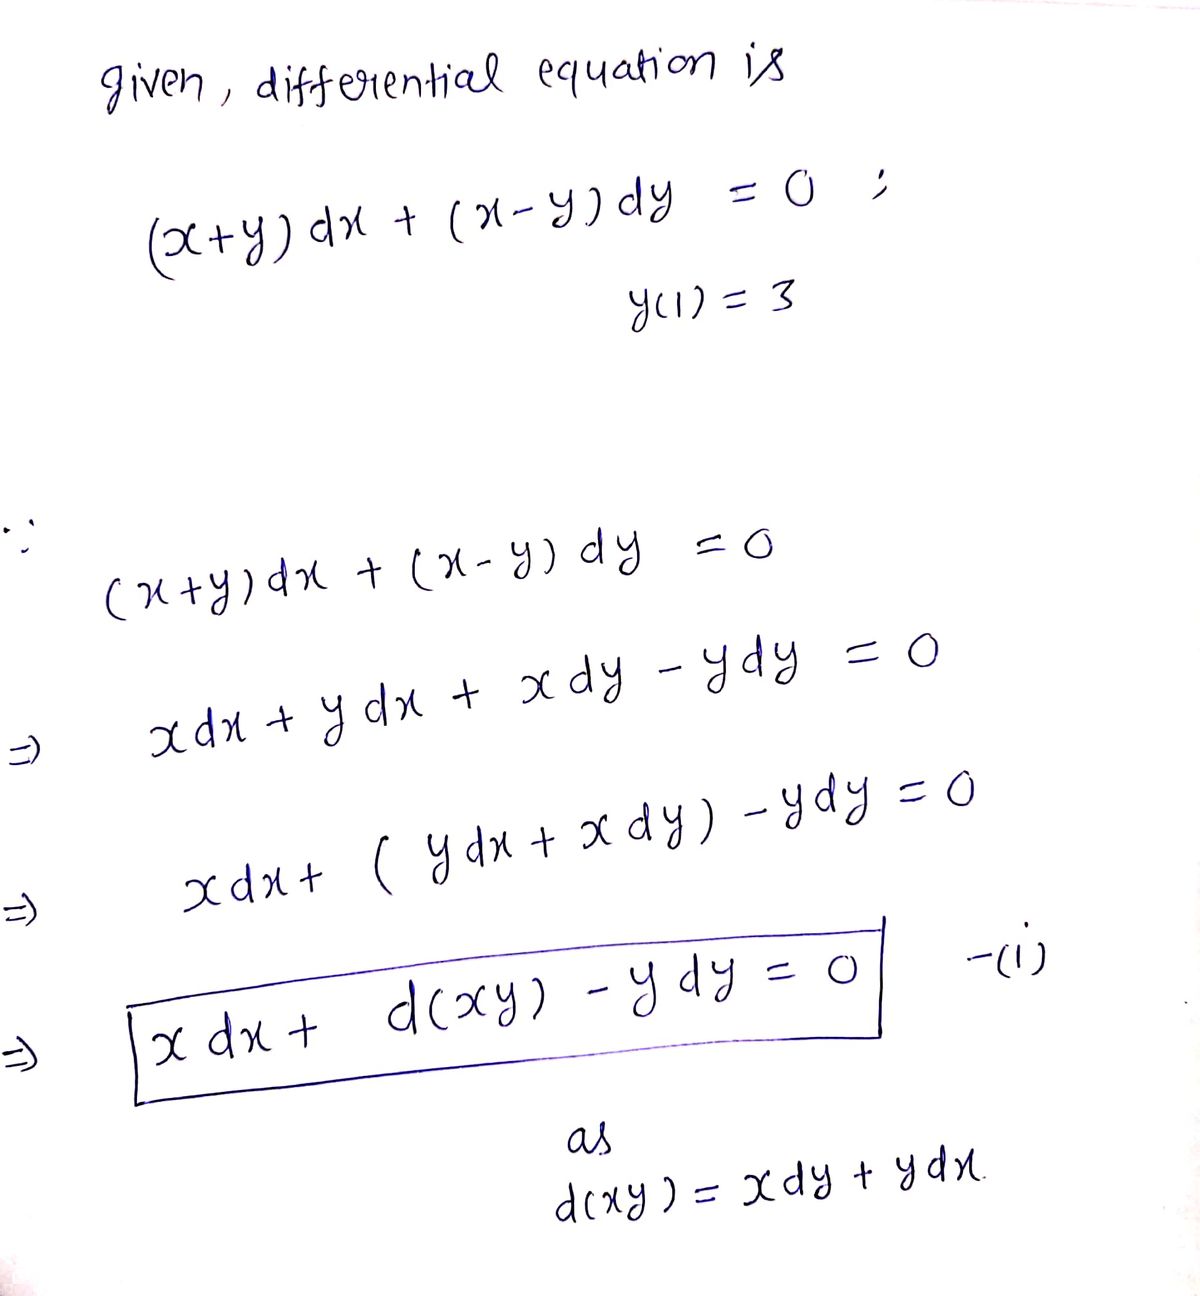 given, differential equation is
(x+y) dx + (x-y) dy = 0 ;
y(1) = 3
∵ (x+y) dx + (x-y) dy = 0
⇒ x dx + y dx + x dy - y dy = 0
⇒ x dx + ( y dx + x dy ) - y dy = 0
⇒ x dx + d(xy) - y dy = 0 -(i)
as
d(xy) = x dy + y dx.